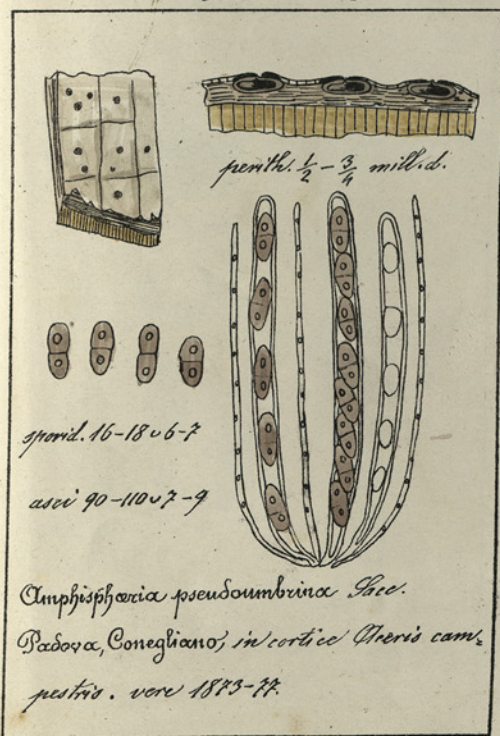 perith. ½ - ¾ mill. d.
sporid. 16-18 ᴗ 6-7
asci 90-110 ᴗ 7-9
Amphisphæria pseudoumbrina Sacc.
Padova, Conegliano, in cortice Aceris cam-
pestris. vere 1873-77.